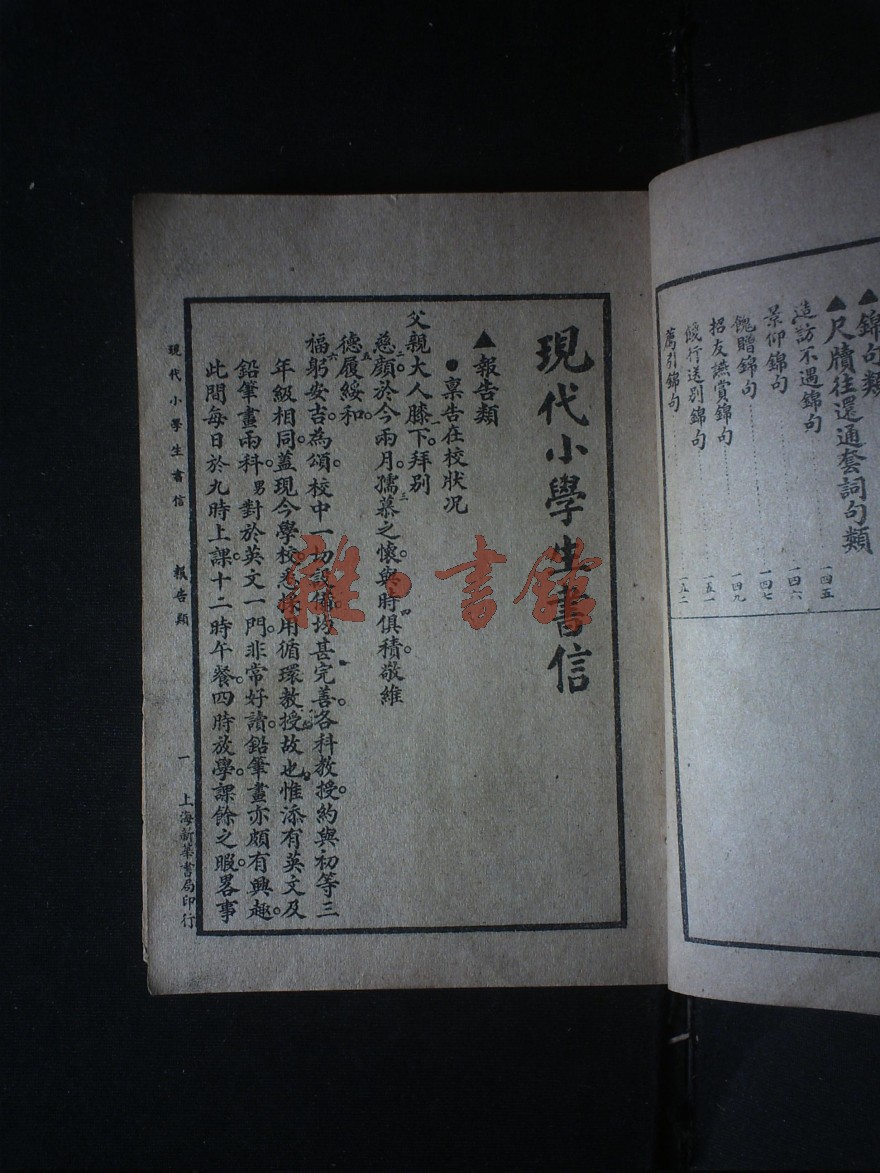 ▲錦句類
▲尺牘往還通套詞句類
造訪不遇錦句 一四五
景仰錦句 一四六
餽贈錦句 一四七
招友讌賞錦句 一四九
餞行送別錦句 一五一
薦引錦句 一五二
現代小學生書信
▲報告類
●稟告在校狀况
父親大人膝下。一拜別
慈顏二。於今兩月。孺慕三之懷。與時俱積四。敬維
德履綏和五。
福躬安吉六。為頌。校中一切設備。均甚完善。各科教授。約與初等三
年級相同。蓋現今學校。悉採用循環教授故也。惟添有英文及
鉛筆畫兩科。男對於英文一門。非常好讀。鉛筆畫亦頗有興趣。
此間每日於九時上課。十二時午餐。四時放學。課餘之暇。畧事
現代小學生書信 報告類 一 上海新華書局印行
雜·書館